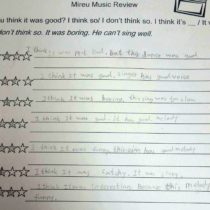 Mireu Music Review
u think it was good? I think so! I don't think so. I think it's __ / It w
don't think so. It was boring. He can't sing well.
I think it was not bad, but the dance was good
I think it was good, singer has good voice
I think it was boring, this song was slow
I think it was good. It has good melody
I think it was funny, this song has good melody
I think it was catchy. It was
I think It was interesting Because this melody
funny.